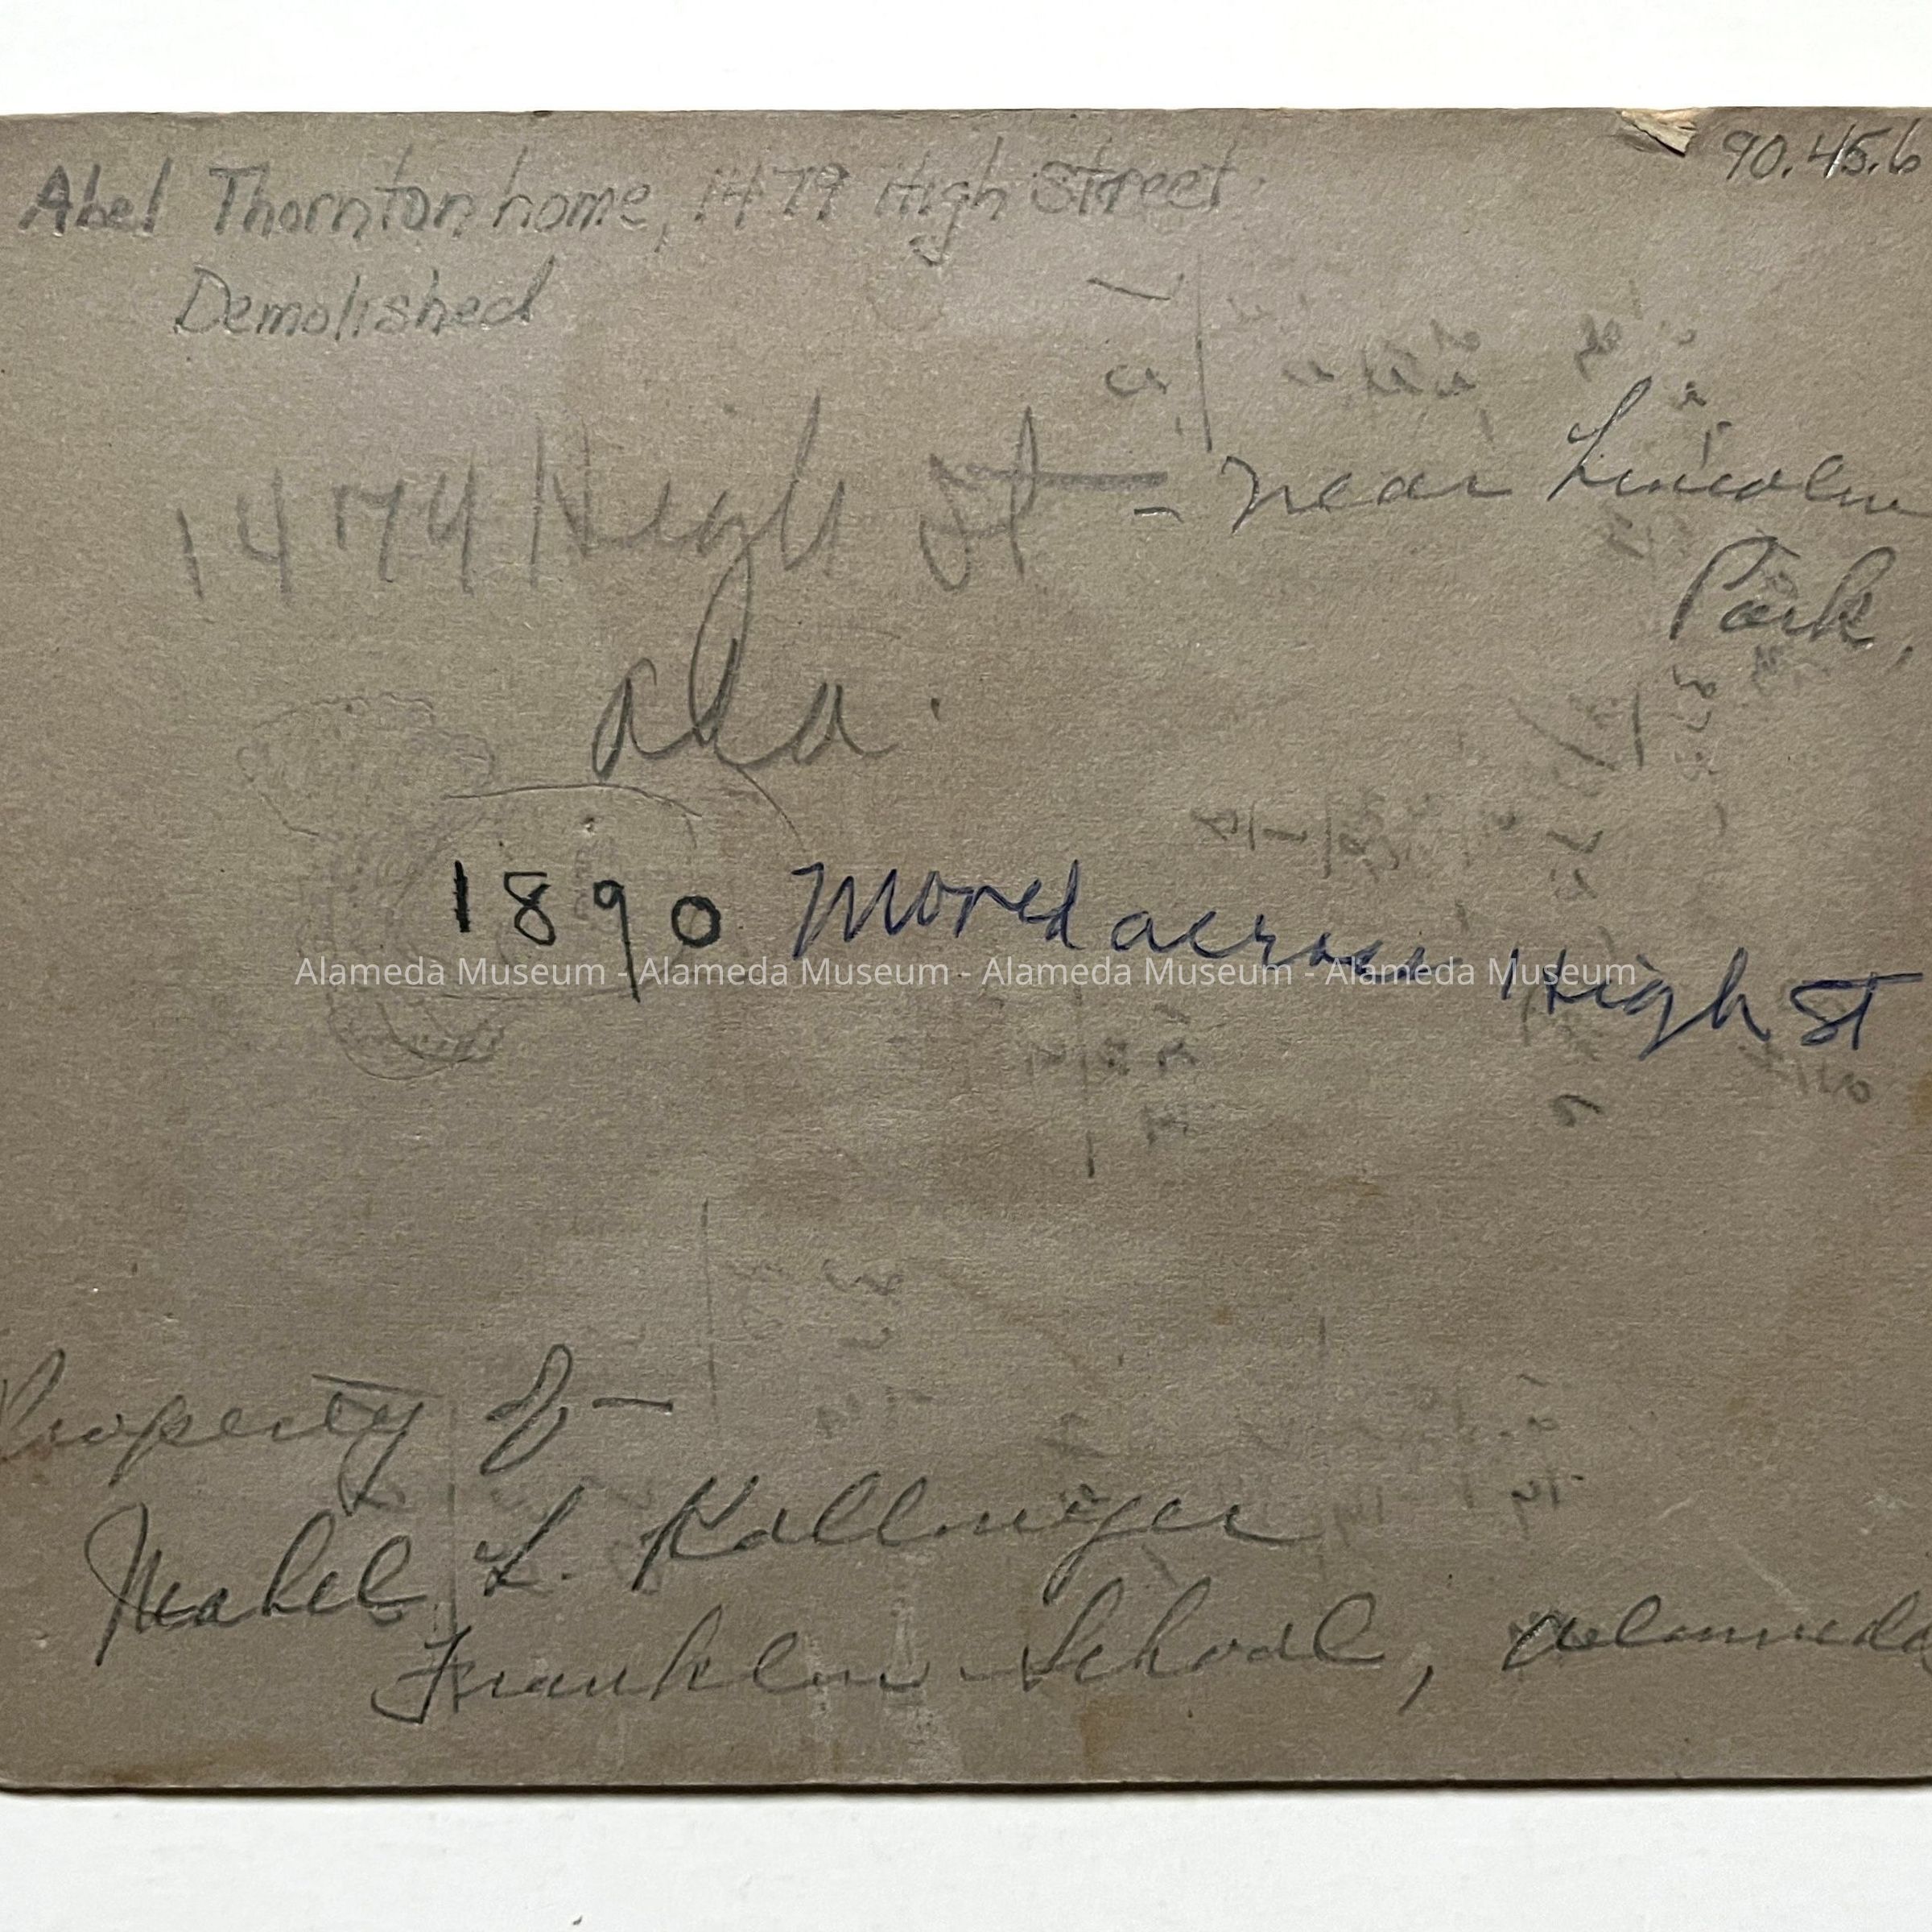 90.45.6
Abel Thornton home, 1479 High Street
Demolished
1474 High St - near Lincoln
Park,
Ala.
1890 Moved across High St
Alameda Museum - Alameda Museum - Alameda Museum - Alameda Museum
Property of -
Mabel L. Kallmeyer
Franklin School, Alameda